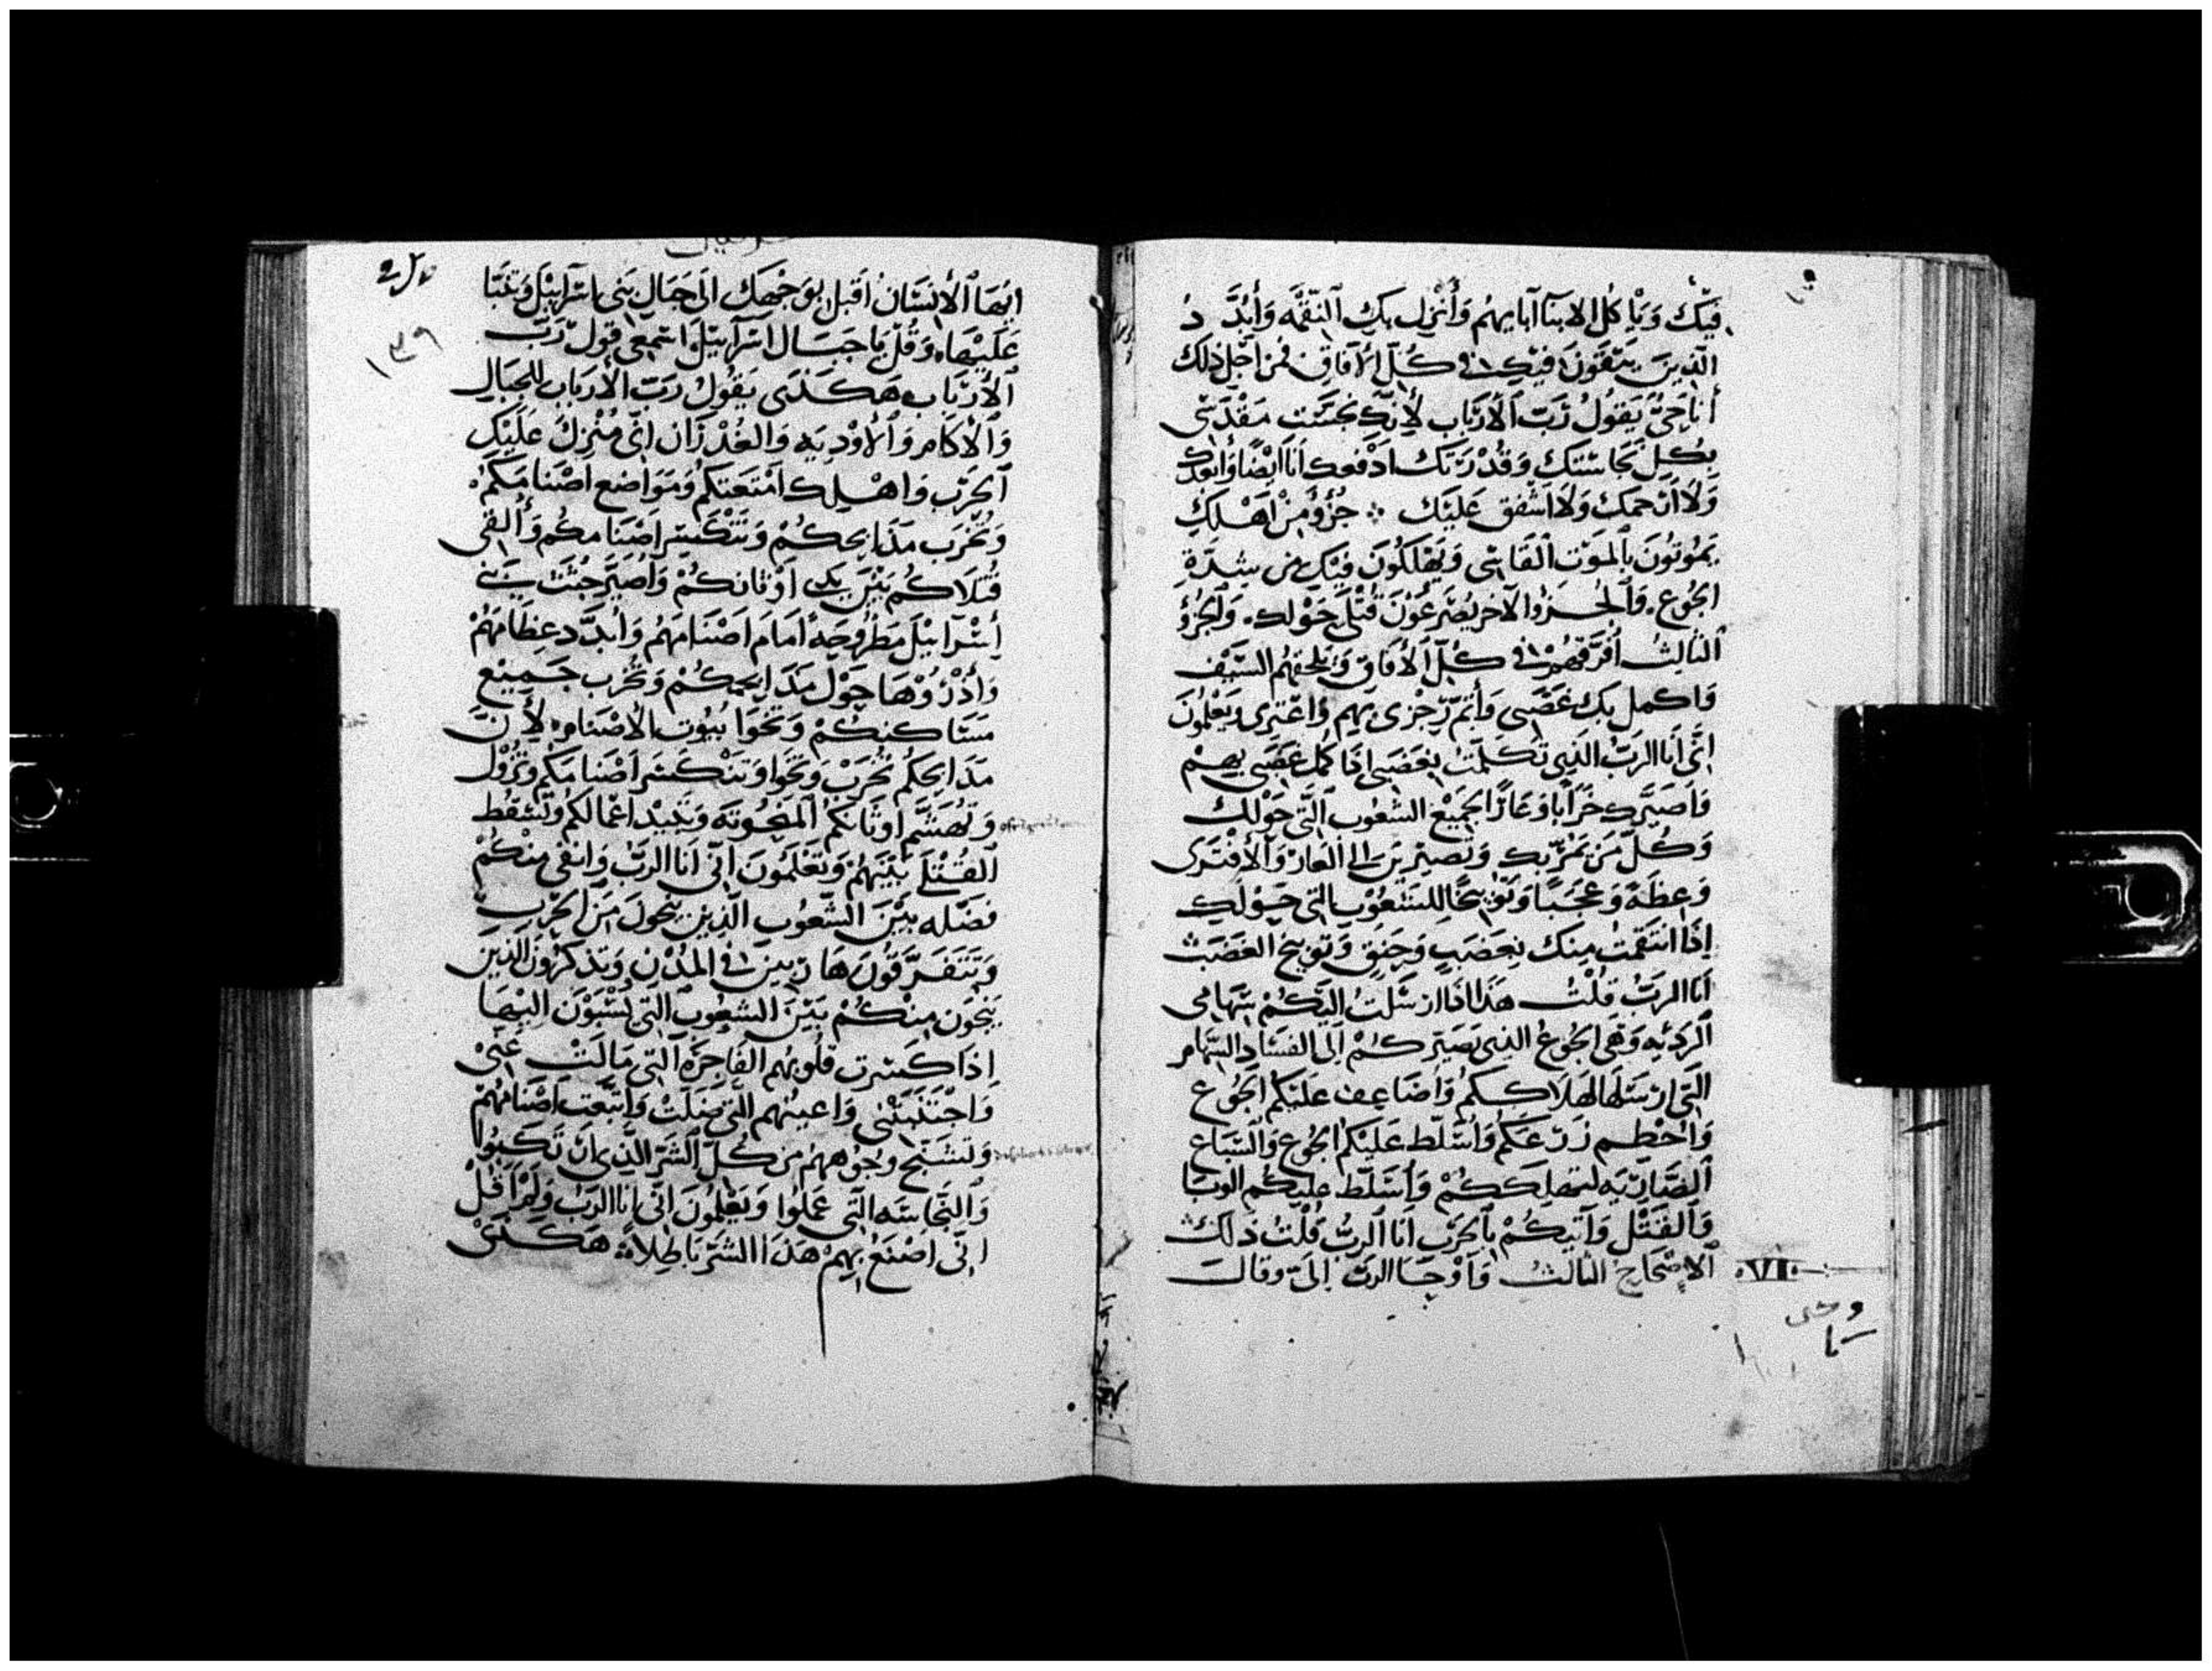 فيك وياكل الابنا آبايهم وأنزل بك النقمه وأبدد
الذين يبقون فيك في كل الآفاق فمن اجل ذلك
أنا حي يقول رب الأرباب لأنك نجست مقدسي
بكل نجاستك وقذرتك ادفعك انا ايضا وابعدك
ولا ارحمك ولا اشفق عليك جزؤ من اهلك
يموتون بالموت القاسي ويهلكون فيك من شدة
الجوع والجزؤ الآخر يصرعون قتلى حولك والجزؤ
الثالث أفرقهم في كل الآفاق ويلحقهم السيف
واكمل بك غضبي وأتم رجزي بهم واعتزي ويعلمون
اني انا الرب الذي تكلمت بغضبي اذا كمل غضبي بهم
فاصيرك خرابا وعارا لجميع الشعوب التي حولك
وكل من يمر بك وتصيرين الى العار والافترى
وعظة وعجبا وتوبيخا للشعوب التي حولك
إذا انتقمت منك بغضب وحنق وتوبيخ الغضب
انا الرب قلت هذا اذا ارسلت اليكم سهامي
الرديه وهي الجوع الذي يصيركم الى الفساد السهام
التي ارسلها لهلاككم واضاعف عليكم الجوع
واحطم زرعكم واسلط عليكم الجوع والسباع
الضاريه لتهلككم وأسلط عليكم الوبا
والقتل وآتيكم بالحرب انا الرب قلت ذلك
الاصحاح الثالث وأوحا الرب إلي وقال
VI
ايها الانسان اقبل بوجهك الى جبال بني اسرآييل وتنبا
عليها وقل يا جبال اسرآييل استمعي قول رب
الأرباب هكذى يقول رب الأرباب للجبال
والآكام والأوديه والغدران اني منزل عليك
الحرب واهلك امتعتكم ومواضع اصنامكم
وتخرب مذابحكم وتتكسر اصنامكم وألقي
قتلاكم بين يدي اوثانكم وأصير جثث بني
أسرآييل مطروحه أمام اصنامهم وأبدد عظامهم
وأذروها حول مذابحكم وتخرب جميع
مساكنكم وتخوا بيوت الاصنام لأن
مذابحكم تخرب وتخوا وتتكسر اصنامكم وتزول
وتهشم اوثانكم المنحوته وتبيد اعمالكم وتسقط
القتلى بينهم وتعلمون اني انا الرب وابقي منكم
فضله بين الشعوب الذين ينجون من الحرب
ويتفرقون هاربين في المدن ويذكرون الذين
ينجون منكم بين الشعوب التي يسبون اليها
اذا كسرت قلوبهم الفاجره التي مالت عني
واجتنبتني واعينهم التي ضلت واتبعت أصنامهم
وتسمج وجوههم من كل الشر الذي ارتكبوا
والنجاسه التي عملوا ويعلمون اني انا الرب ولم اقل
اني اصنع بهم هذا الشر باطلا هكذى